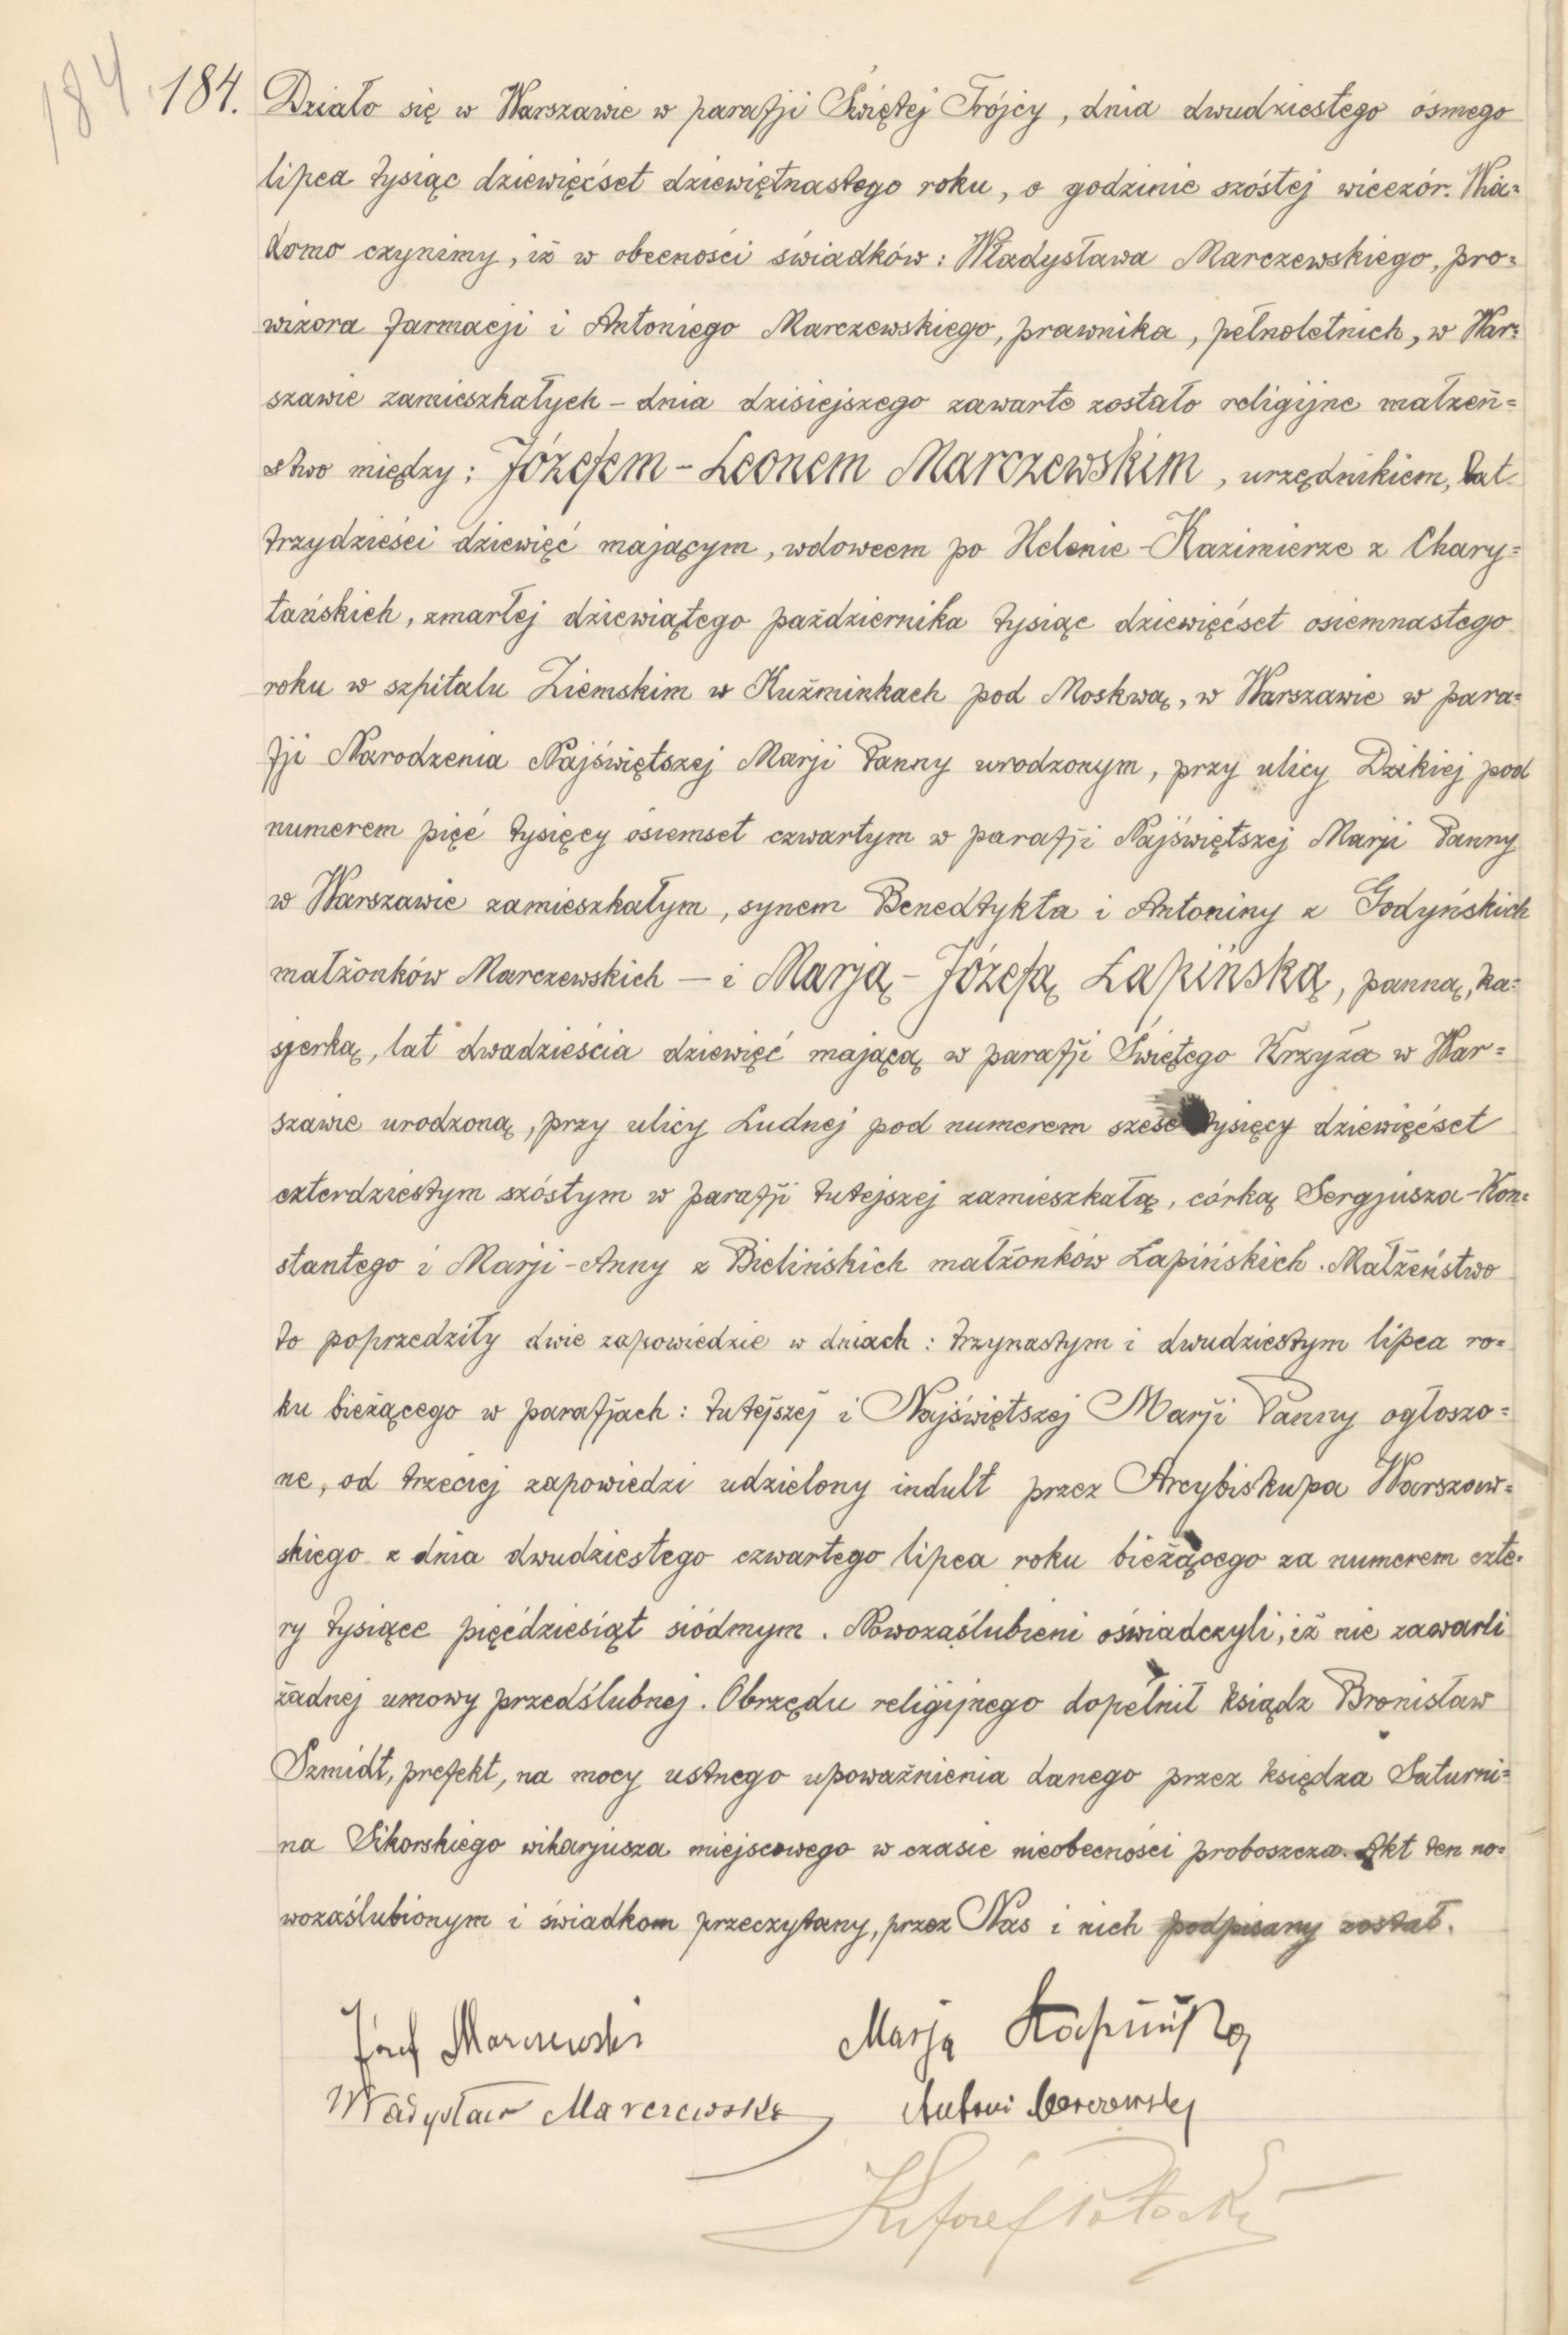 184.
184. Działo się w Warszawie w parafji Świętej Trójcy, dnia dwudziestego ósmego
lipca tysiąc dziewięćset dziewiętnastego roku, o godzinie szóstej wieczór. Wia=
domo czynimy, iż w obecności świadków: Władysława Marczewskiego, pro=
wizora farmacji i Antoniego Marczewskiego, prawnika, pełnoletnich, w War=
szawie zamieszkałych – dnia dzisiejszego zawarte zostało religijne małżeń=
stwo między: Józefem-Leonem Marczewskim, urzędnikiem, lat
trzydzieści dziewięć mającym, wdowcem po Helenie-Kazimierze z Chary=
tańskich, zmarłej dziewiątego października tysiąc dziewięćset osiemnastego
roku w szpitalu Ziemskim w Kuźminkach pod Moskwą, w Warszawie w para=
fji Narodzenia Najświętszej Marji Panny urodzonym, przy ulicy Dzikiej pod
numerem pięć tysięcy ośiemset czwartym w parafji Najświętszej Marji Panny
w Warszawie zamieszkałym, synem Benedykta i Antoniny z Godyńskich
małżonków Marczewskich — i Marją-Józefą Łapińską, panną, ka=
sjerką, lat dwadzieścia dziewięć mającą w parafji Świętego Krzyża w War=
szawie urodzoną, przy ulicy Ludnej pod numerem sześć tysięcy dziewięćset
czterdziestym szóstym w parafji tutejszej zamieszkałą, córką Sergjusza-Kon=
stantego i Marji-Anny z Bielińskich małżonków Łapińskich. Małżeństwo
to poprzedziły dwie zapowiedzie w dniach: trzynastym i dwudziestym lipca ro=
ku bieżącego w parafjach: tutejszej i Najświętszej Marji Panny ogłoszo=
ne, od trzeciej zapowiedzi udzielony indult przez Arcybiskupa Warszaw=
skiego z dnia dwudziestego czwartego lipca roku bieżącego za numerem czte=
ry tysiące pięćdziesiąt siódmym. Nowozaślubieni oświadczyli, iż nie zawarli
żadnej umowy przedślubnej. Obrzędu religijnego dopełnił ksiądz Bronisław
Szmidt, prefekt, na mocy ustnego upoważnienia danego przez księdza Saturni=
na Sikorskiego wikarjusza miejscowego w czasie nieobecności proboszcza. Akt ten no=
wozaślubionym i świadkom przeczytany, przez Nas i nich podpisany został.
Józef Marczewski Marja Łapińska
Władysław Marczewski Antoni Marczewski